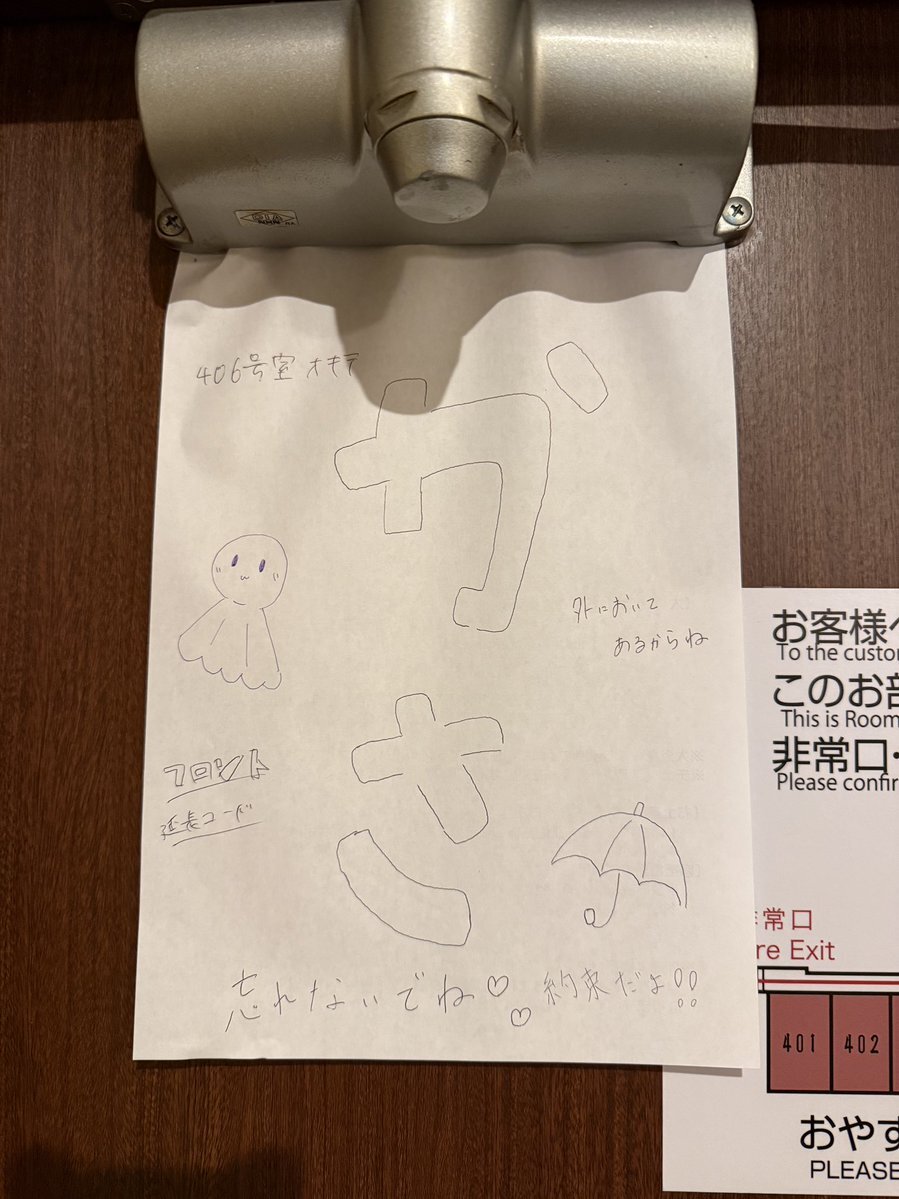 406号室 オキテ
か
外において
あるからね
さ
フロント
延長コード
忘れないでね♡♡ 約束だよ!!
お客様へ
To the custo
このお部
This is Room
非常口・
Please confir
常口
re Exit
401 402
おやす
PLEASE